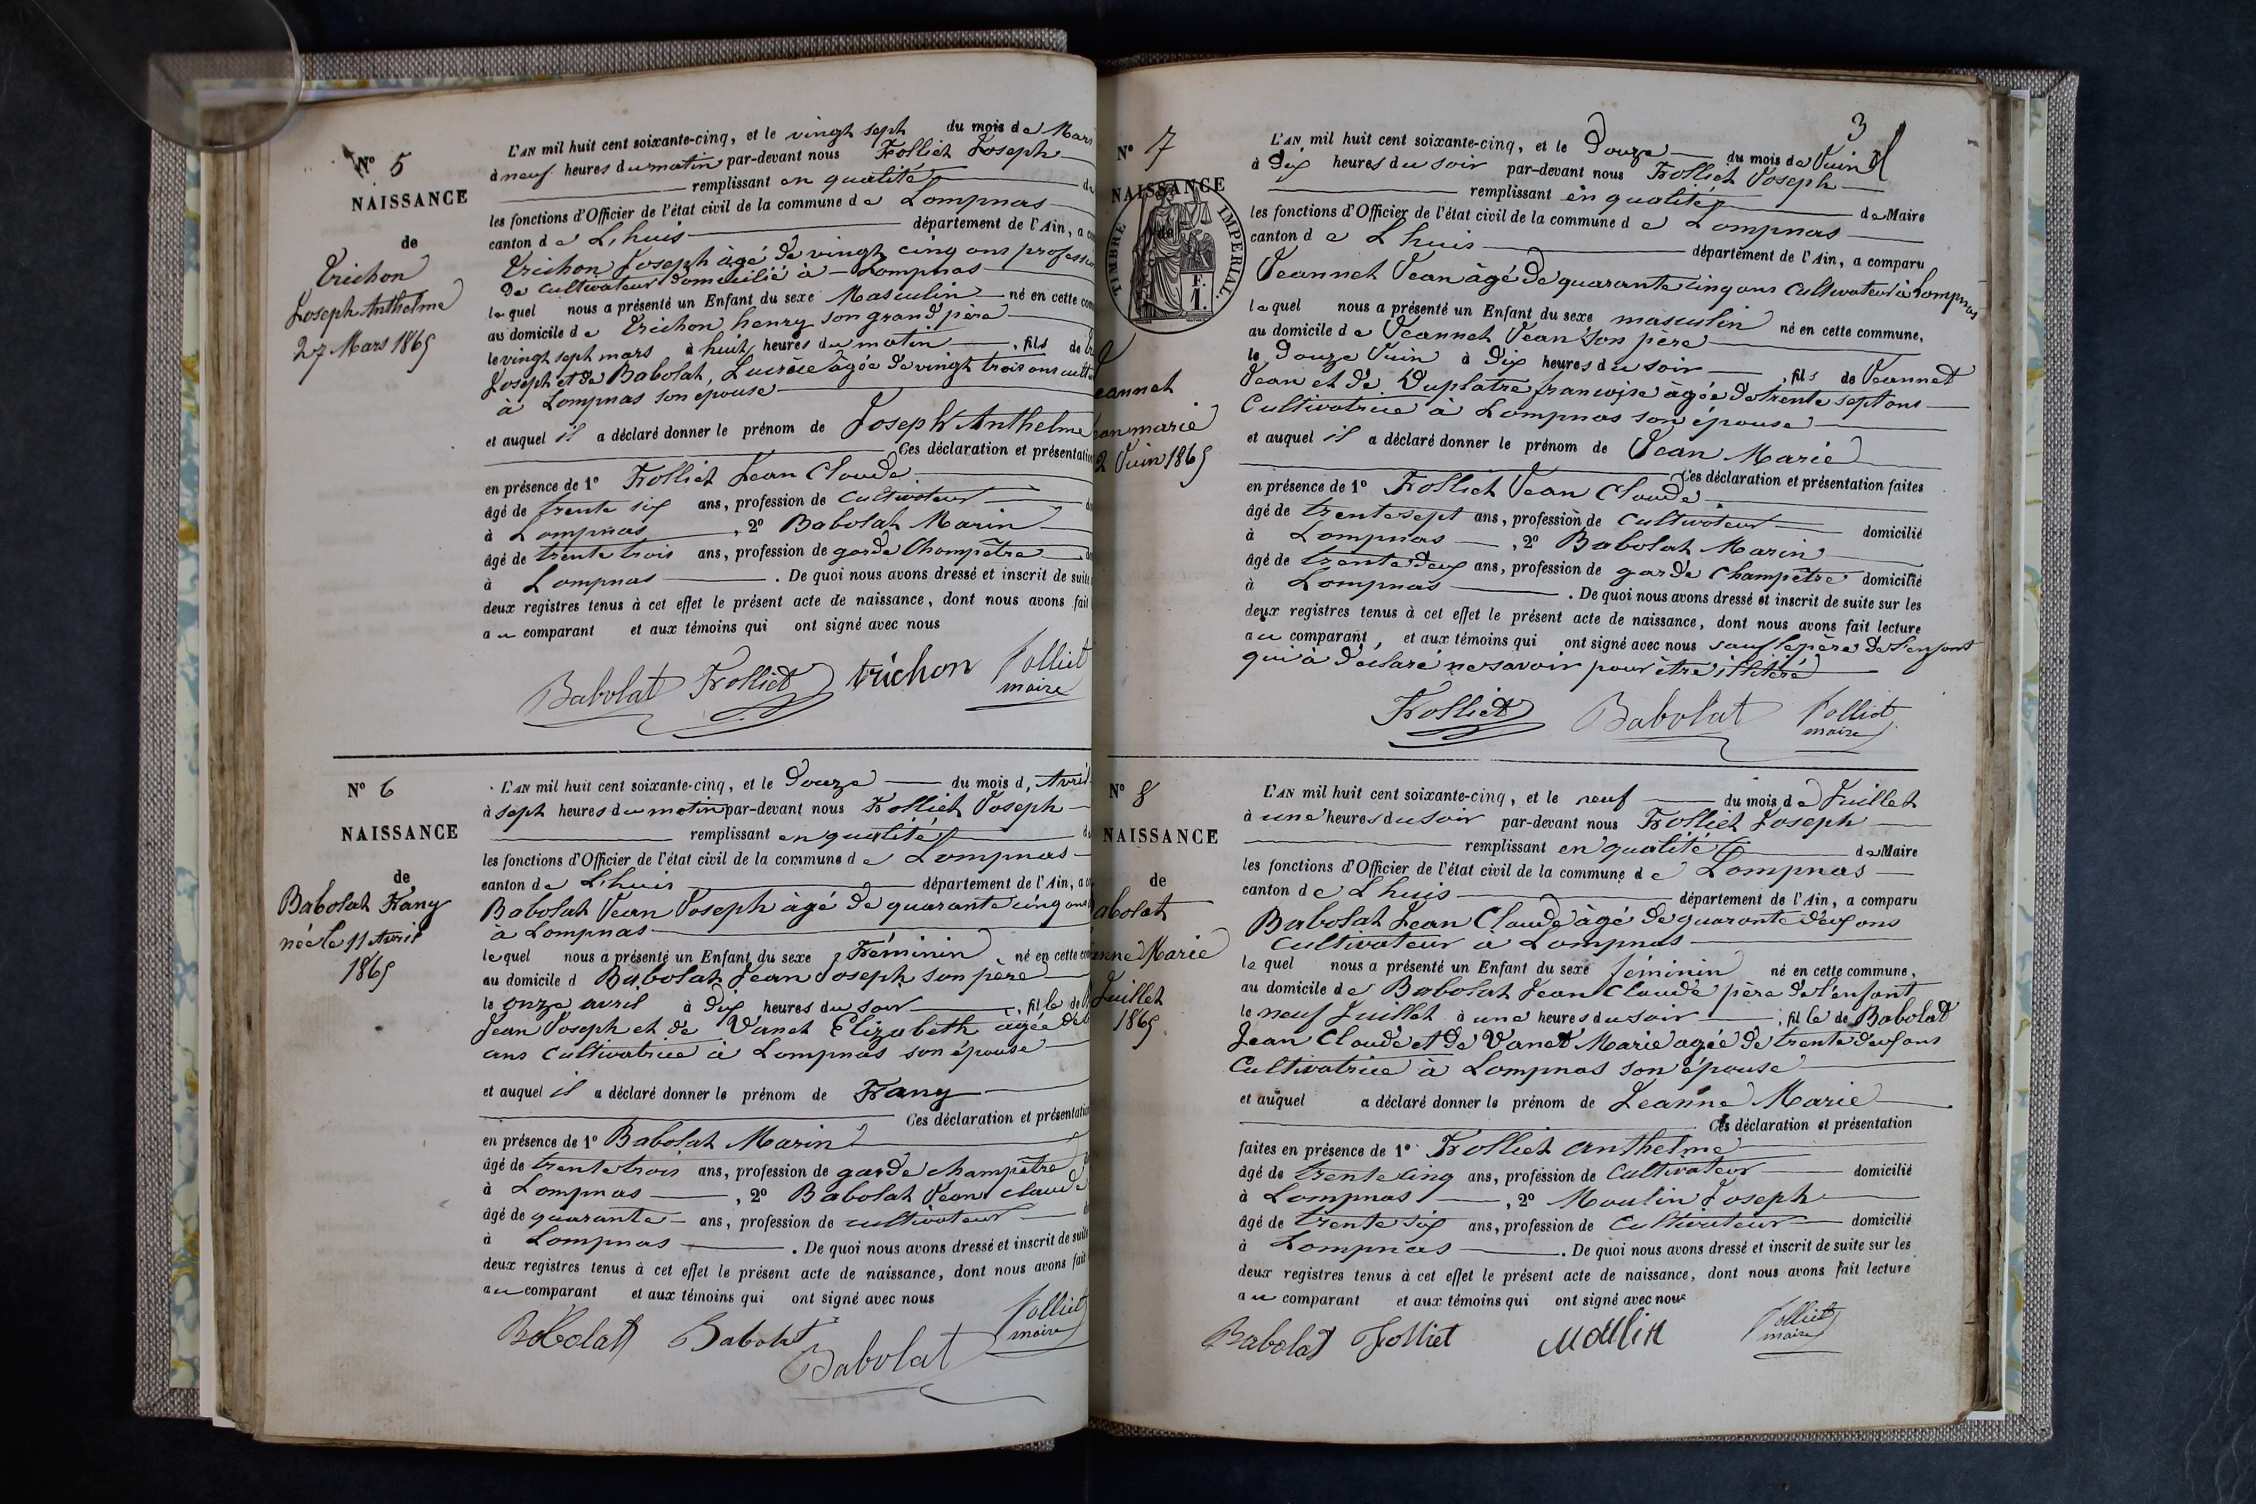 Nº 5
NAISSANCE
de
Trichon
Joseph Anthelme
27 Mars 1865
L'AN mil huit cent soixante-cinq, et le vingt sept du mois de Mars
à neuf heures du matin par-devant nous Folliet Joseph
remplissant en qualité
les fonctions d'Officier de l'état civil de la commune de Lompnas
canton de L,huis département de l'Ain, a
Trichon Joseph âgé de vingt cinq ans
de cultivateur domicilié à Lompnas
lequel nous a présenté un Enfant du sexe Masculin né en cette
au domicile de Trichon henry son grand père
le vingt sept mars à huit heures du matin , fils de
Joseph et de Babolat, Lucrèce âgée de vingt trois ans
à Lompnas son épouse
et auquel il a déclaré donner le prénom de Joseph Anthelme
Ces déclaration et présentation
en présence de 1º Folliet Jean Claude
âgé de trente six ans, profession de cultivateur
à Lompnas , 2º Babolat Marin
âgé de trente trois ans, profession de garde Champêtre
à Lompnas . De quoi nous avons dressé et inscrit de suite
deux registres tenus à cet effet le présent acte de naissance, dont nous avons fait
au comparant et aux témoins qui ont signé avec nous
Babolat Folliet trichon Folliet
maire
Nº 6
NAISSANCE
de
Babolat Fany
née le 11 Avril
1865
L'AN mil huit cent soixante-cinq, et le Douze du mois d, Avril
à sept heures du matin par-devant nous Folliet Joseph
remplissant en qualité
les fonctions d'Officier de l'état civil de la commune de Lompnas
canton de L,huis département de l'Ain, a
Babolat Jean Joseph âgé de quarante cinq ans
à Lompnas
lequel nous a présenté un Enfant du sexe Féminin né en cette
au domicile d Babolat Jean Joseph son père
le onze avril à dix heures du soir , fille de
Jean Joseph et de Vanet Elizabeth âgée de
ans Cultivatrice à Lompnas son épouse
et auquel il a déclaré donner le prénom de Fany
Ces déclaration et présentation
en présence de 1º Babolat Marin
âgé de trente trois ans, profession de garde champêtre
à Lompnas , 2º Babolat Jean claude
âgé de quarante ans, profession de cultivateur
à Lompnas . De quoi nous avons dressé et inscrit de suite
deux registres tenus à cet effet le présent acte de naissance, dont nous avons fait
au comparant et aux témoins qui ont signé avec nous
Babolat Babolat Folliet
maire
Babolat
3
Nº 7
NAISSANCE
de
TIMBRE IMPERIAL.
F.
1.
eannet
ean marie
2 Juin 1865
L'AN mil huit cent soixante-cinq, et le Douze du mois de Juin
à Dix heures du soir par-devant nous Folliet Joseph
remplissant en qualité de Maire
les fonctions d'Officier de l'état civil de la commune de Lompnas
canton de L huis département de l'Ain, a comparu
Jeannet Jean âgé de quarante cinq ans Cultivateur à Lompnas
lequel nous a présenté un Enfant du sexe masculin né en cette commune,
au domicile de Jeannet Jean son père
le Douze Juin à Dix heures du soir , fils de Jeannet
Jean et de Duplatre françoise âgée de trente sept ans
Cultivatrice à Lompnas son épouse
et auquel il a déclaré donner le prénom de Jean Marie
Ces déclaration et présentation faites
en présence de 1º Folliet Jean Claude
âgé de trente sept ans, profession de Cultivateur domicilié
à Lompnas , 2º Babolat Marin
âgé de trente deux ans, profession de garde Champêtre domicilié
à Lompnas . De quoi nous avons dressé et inscrit de suite sur les
deux registres tenus à cet effet le présent acte de naissance, dont nous avons fait lecture
au comparant, et aux témoins qui ont signé avec nous sauf le père de l'enfant
qui à déclaré ne savoir pour être illitéré
Folliet Babolat Folliet
maire
Nº 8
NAISSANCE
de
abolat
anne Marie
Juillet
1865
L'AN mil huit cent soixante-cinq, et le neuf du mois de Juillet
à une heures du soir par-devant nous Folliet Joseph
remplissant en qualité de Maire
les fonctions d'Officier de l'état civil de la commune de Lompnas
canton de L huis département de l'Ain, a comparu
Babolat Jean Claude âgé de quarante deux ans
Cultivateur a Lompnas
lequel nous a présenté un Enfant du sexe féminin né en cette commune,
au domicile de Babolat Jean Claude père de l'enfant
le neuf Juillet à une heures du soir , fille de Babolat
Jean Claude et de Vanet Marie agée de trente deux ans
Cultivatrice à Lompnas son épouse
et auquel a déclaré donner le prénom de Jeanne Marie
Ces déclaration et présentation
faites en présence de 1º Folliet anthelme
âgé de trente cinq ans, profession de Cultivateur domicilié
à Lompnas , 2º Moulin Joseph
âgé de trente six ans, profession de Cultivateur domicilié
à Lompnas . De quoi nous avons dressé et inscrit de suite sur les
deux registres tenus à cet effet le présent acte de naissance, dont nous avons fait lecture
au comparant et aux témoins qui ont signé avec nous
Babolat Folliet Moulin Folliet
maire